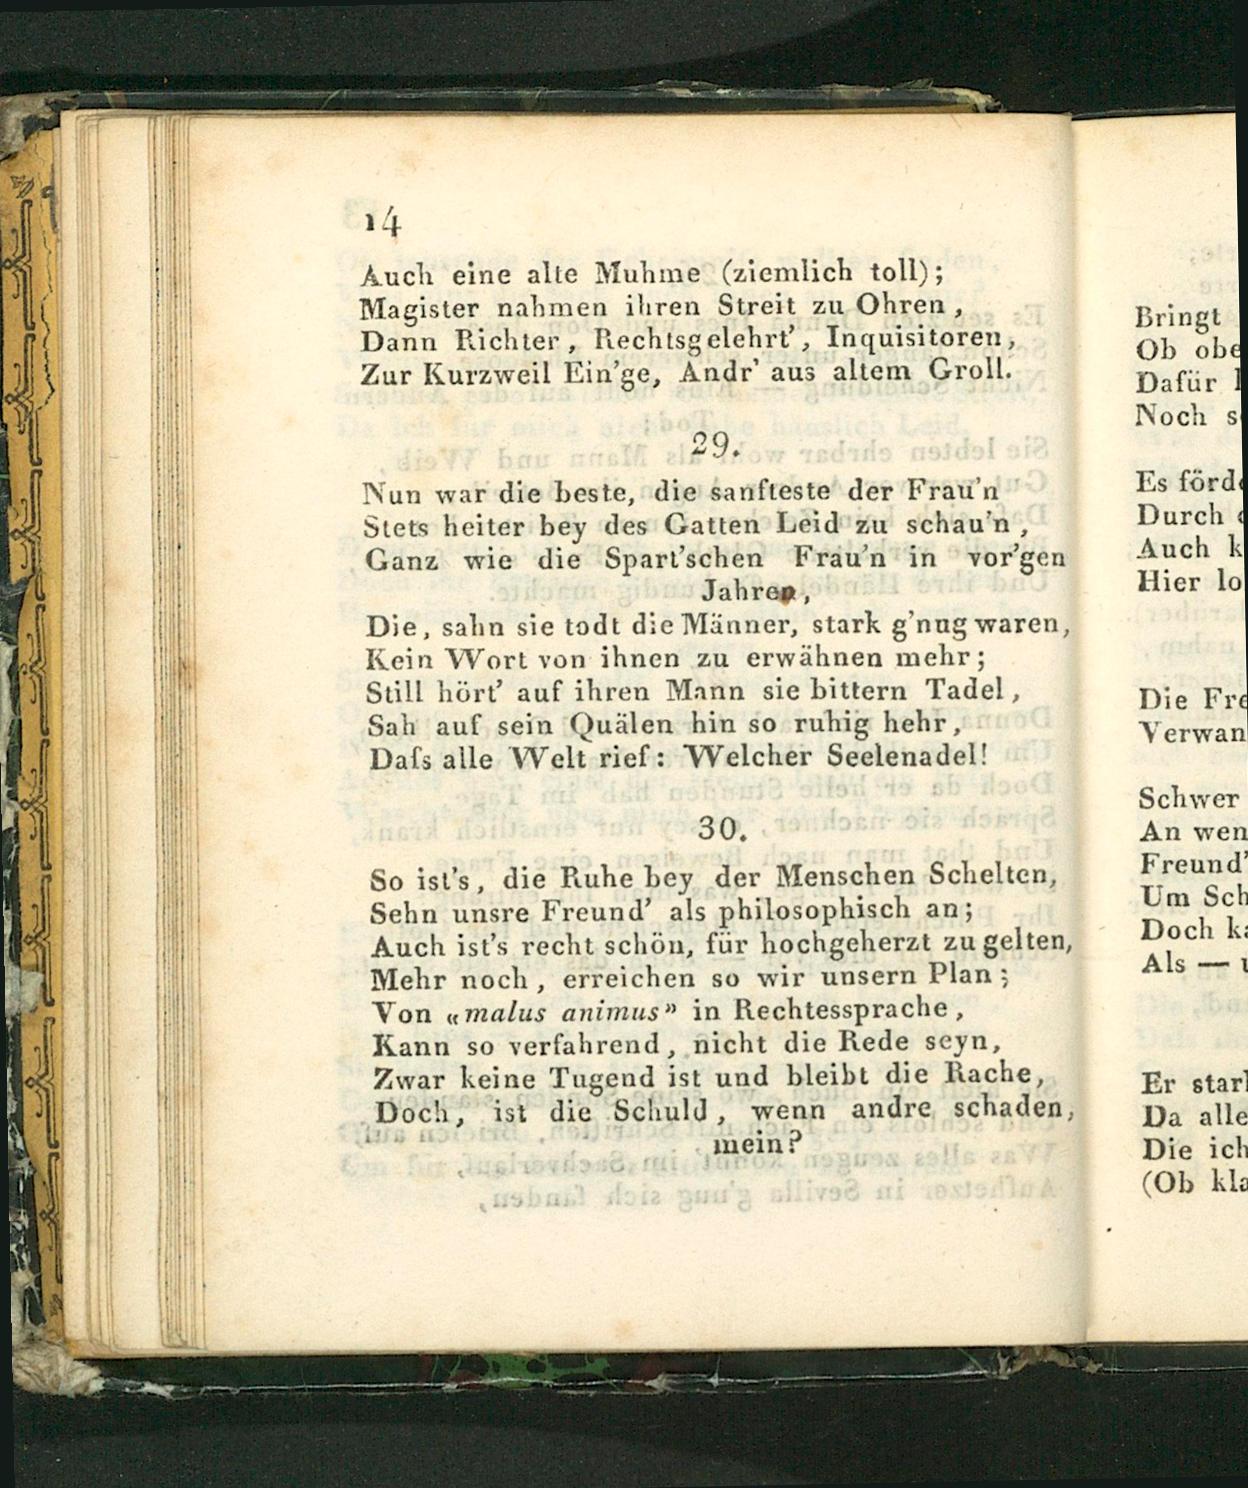 14
Auch eine alte Muhme (ziemlich toll);
Magister nahmen ihren Streit zu Ohren,
Dann Richter, Rechtsgelehrt', Inquisitoren,
Zur Kurzweil Ein'ge, Andr' aus altem Groll.
29.
Nun war die beste, die sanfteste der Frau'n
Stets heiter bey des Gatten Leid zu schau'n,
Ganz wie die Spart'schen Frau'n in vor'gen
Jahren,
Die, sahn sie todt die Männer, stark g'nug waren,
Kein Wort von ihnen zu erwähnen mehr;
Still hört' auf ihren Mann sie bittern Tadel,
Sah auf sein Quälen hin so ruhig hehr,
Daſs alle Welt rief: Welcher Seelenadel!
30.
So ist's, die Ruhe bey der Menschen Schelten,
Sehn unsre Freund' als philosophisch an;
Auch ist's recht schön, für hochgeherzt zu gelten,
Mehr noch, erreichen so wir unsern Plan;
Von «malus animus» in Rechtessprache,
Kann so verfahrend, nicht die Rede seyn,
Zwar keine Tugend ist und bleibt die Rache,
Doch, ist die Schuld, wenn andre schaden,
mein?
Bringt
Ob
Dafür
Noch
Es
Durch
Auch
Hier
Die
Schwer
An
Freund'
Um
Doch
Als —
Er
Da alle
Die ich
(Ob